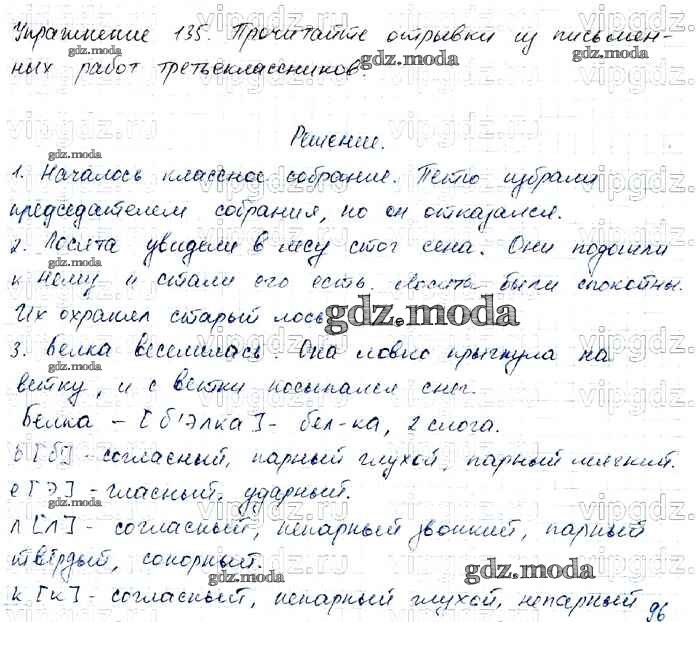 Упражнение 135. Прочитайте отрывки из письмен-
ных работ третьеклассников.
Решение.
1. Началось классное собрание. Петю избрали
председателем собрания, но он отказался.
2. Лосята увидели в лесу стог сена. Они подошли
к нему и стали его есть. Лосята были спокойны.
Их охранял старый лось
3. Белка веселилась. Она ловко прыгнула на
ветку, и с ветки посыпался снег.
Белка – [б'элка] – бел-ка, 2 слога.
б [б'] - согласный, парный глухой, парный мягкий.
е [э] - гласный, ударный.
л [л] - согласный, непарный звонкий, парный
твёрдый, сонорный.
к [к] - согласный, непарный глухой, непарный
96
gdz.moda
gdz.moda
gdz.moda
gdz.moda
gdz.moda
gdz.moda
gdz.moda
vipgdz.ru